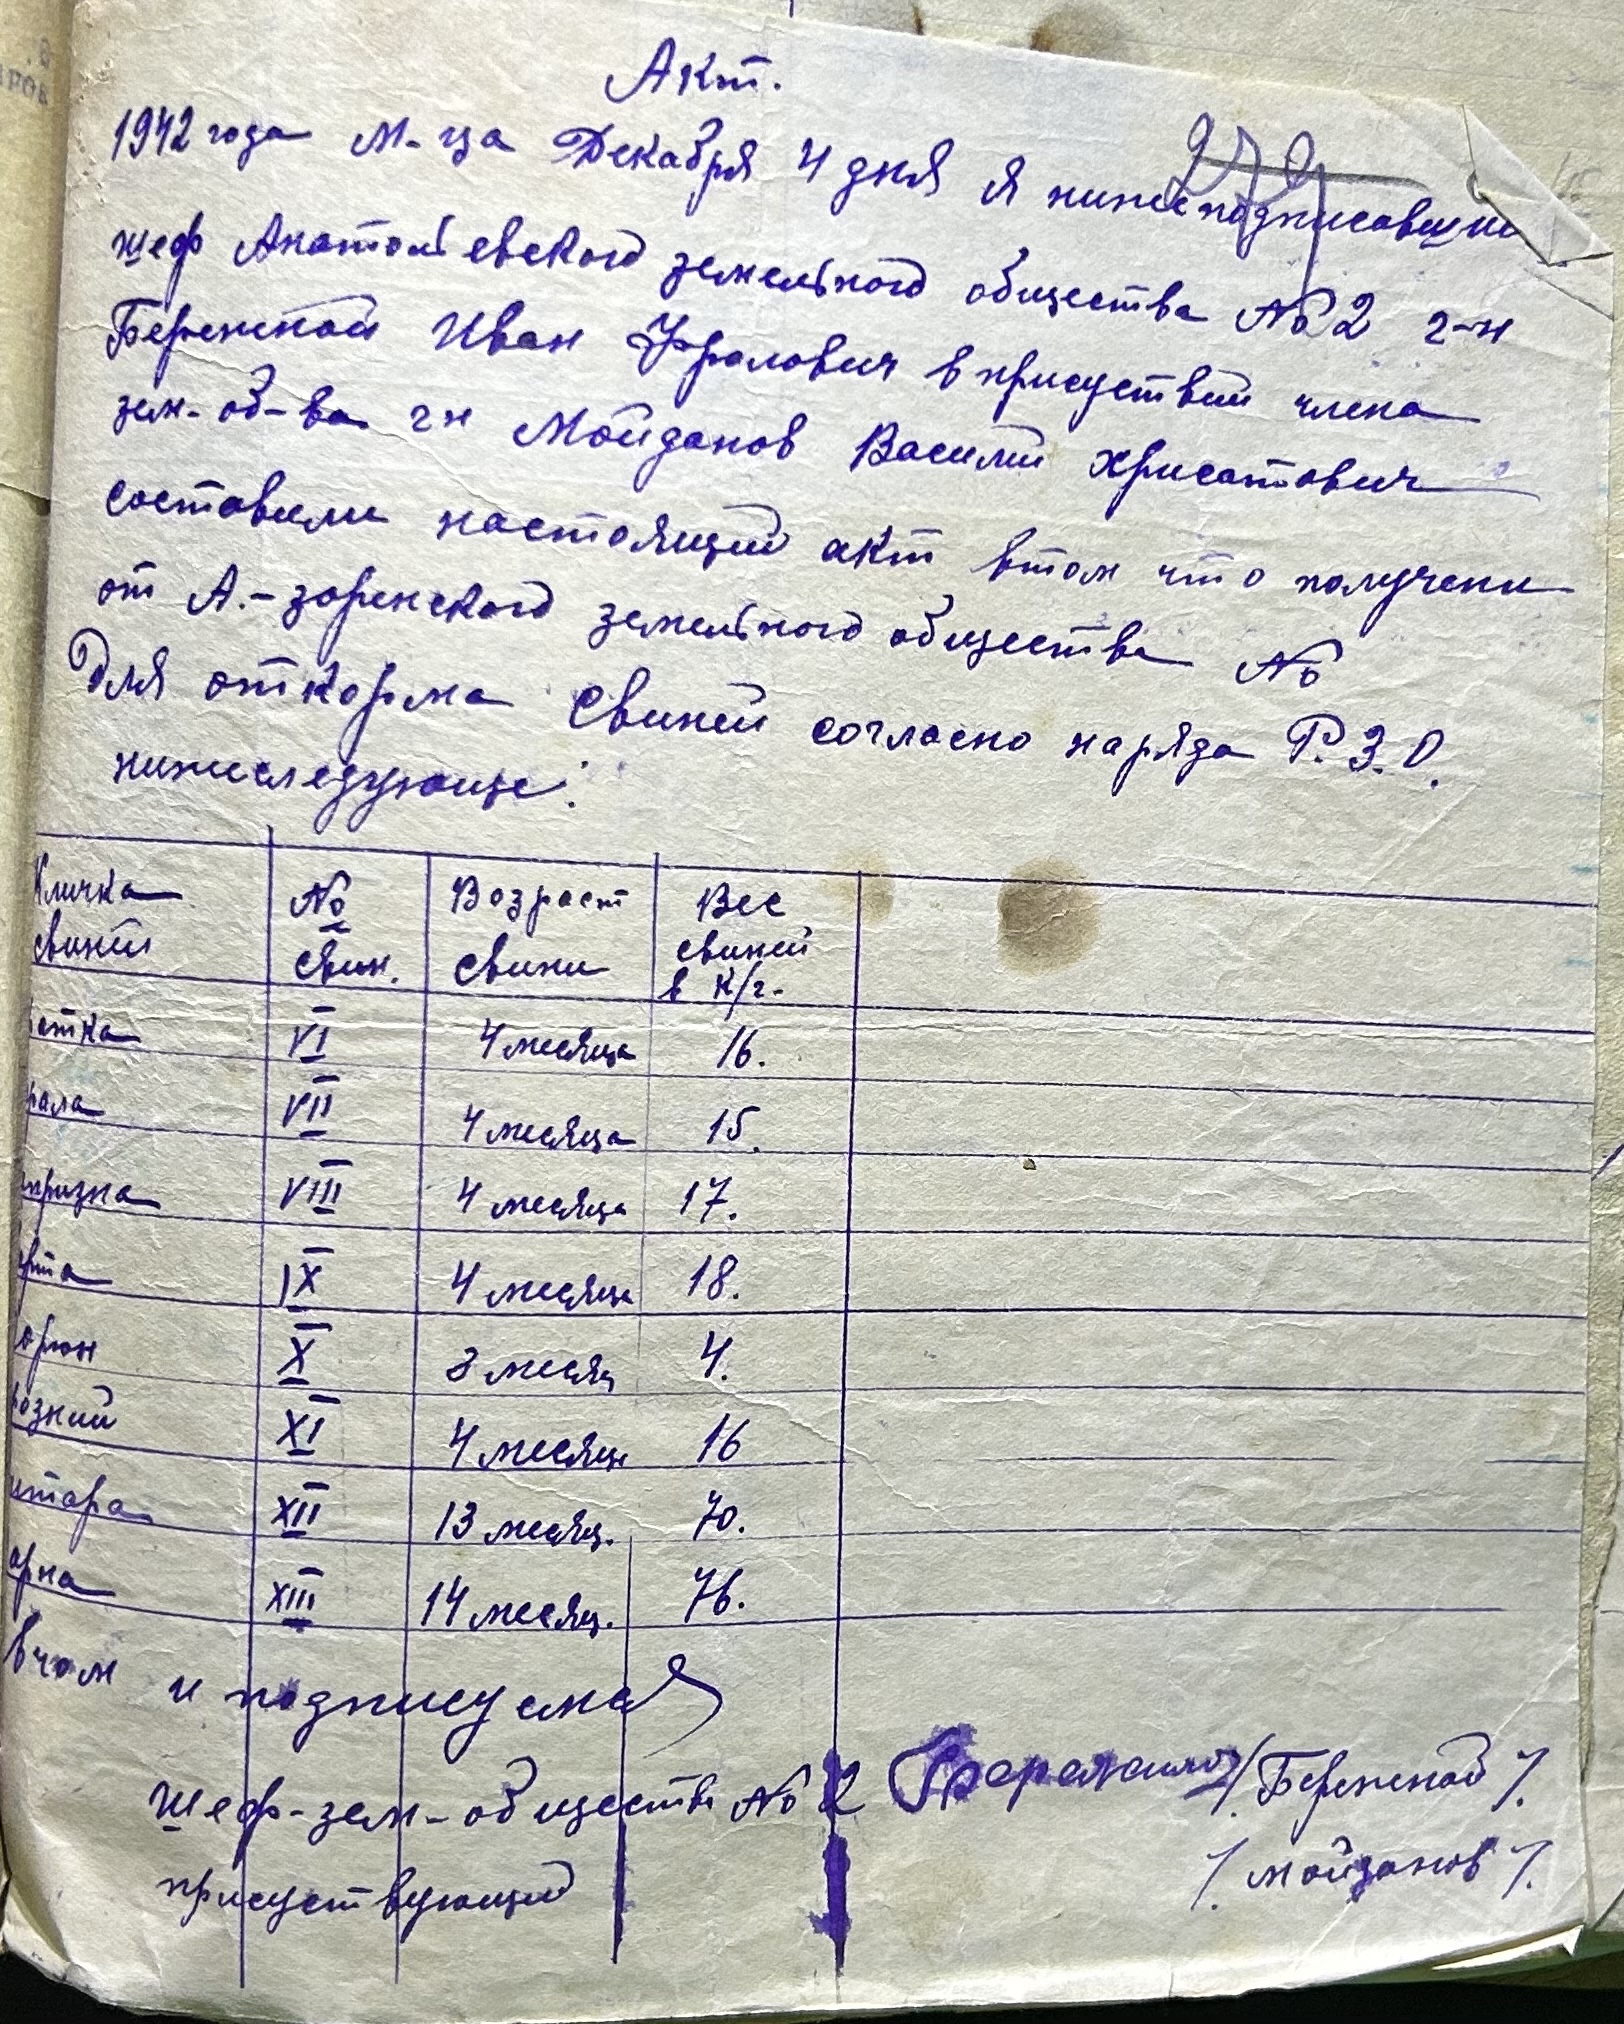 Акт.
279
1942 года м-ца Декабря 4 дня я нижеподписавший
шеф Анатольевского земельного общества № 2 г-н
Бережной Иван Фролович в присуствии члена
зем-об-ва г-н Мойданов Василий Хрисатович
составили настоящий акт втом что получени
от А.-зоренского земельного общества №
Для откорма свиней согласно наряда Р.З.О.
нижиследующе:
Кличка № Возраст Вес
свиней свин. свини свиней
в к/г.
етка VI 4 месяца 16.
рала VII 4 месяца 15.
призна VIII 4 месяца 17.
рта IX 4 месяца 18.
орон X 2 месяц 4.
розний XI 4 месяц 16
итора XII 13 месяц. 70.
орна XIII 14 месяц. 76.
вчом и подписуемся
шеф-зем-обществ № 2 Бережной /Бережной/.
присуствующий /мойданов/.